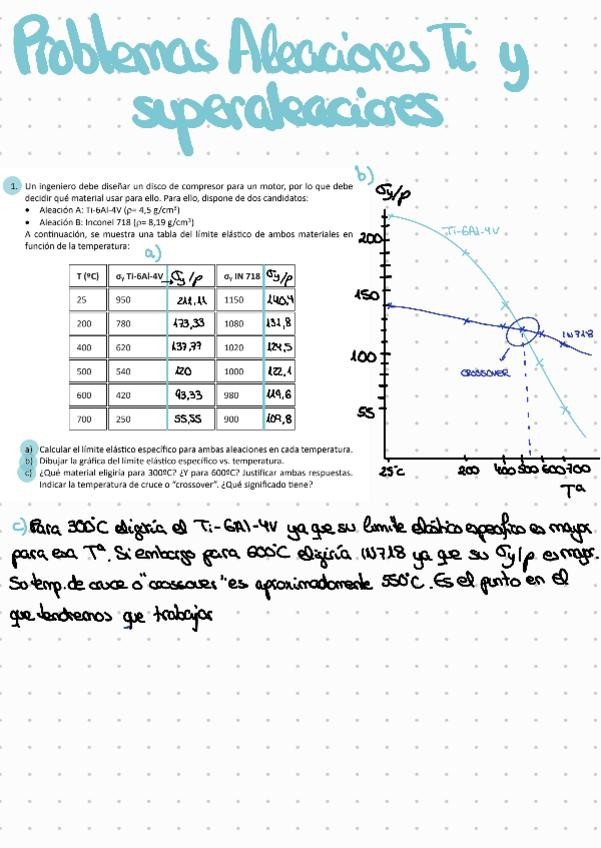 Problemas Aleaciones Ti y
superaleaciones
1. Un ingeniero debe diseñar un disco de compresor para un motor, por lo que debe
decidir qué material usar para ello. Para ello, dispone de dos candidatos:
• Aleación A: Ti-6Al-4V (ρ= 4,5 g/cm³)
• Aleación B: Inconel 718 (ρ= 8,19 g/cm³)
A continuación, se muestra una tabla del límite elástico de ambos materiales en
función de la temperatura:
a)
T (ºC) σy Ti-6Al-4V → σy/ρ σy IN 718 σy/ρ
25 950 211,11 1150 140,4
200 780 173,33 1080 131,8
400 620 137,77 1020 124,5
500 540 120 1000 122,1
600 420 93,33 980 119,6
700 250 55,55 900 109,8
a) Calcular el límite elástico específico para ambas aleaciones en cada temperatura.
b) Dibujar la gráfica del límite elástico específico vs. temperatura.
c) ¿Qué material eligiría para 300ºC? ¿Y para 600ºC? Justificar ambas respuestas.
Indicar la temperatura de cruce o "crossover". ¿Qué significado tiene?
b)
σy/ρ
Ti-6Al-4V
200
150
IN718
100
CROSSOVER
55
25°C 200 400 500 600 700
Tª
c) Para 300°C eligiría el Ti-6Al-4V ya que su límite elástico específico es mayor
para esa Tª. Si embargo para 600°C eligiría IN718 ya que su σy/ρ es mayor.
Su temp. de cruce o "crossover" es aproximadamente 550°C. Es el punto en el
que tendremos que trabajar